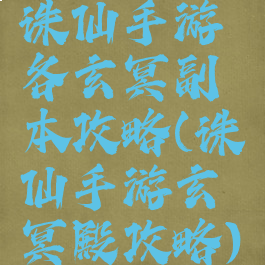 诛仙手游
各玄冥副
本攻略(诛
仙手游玄
冥殿攻略)